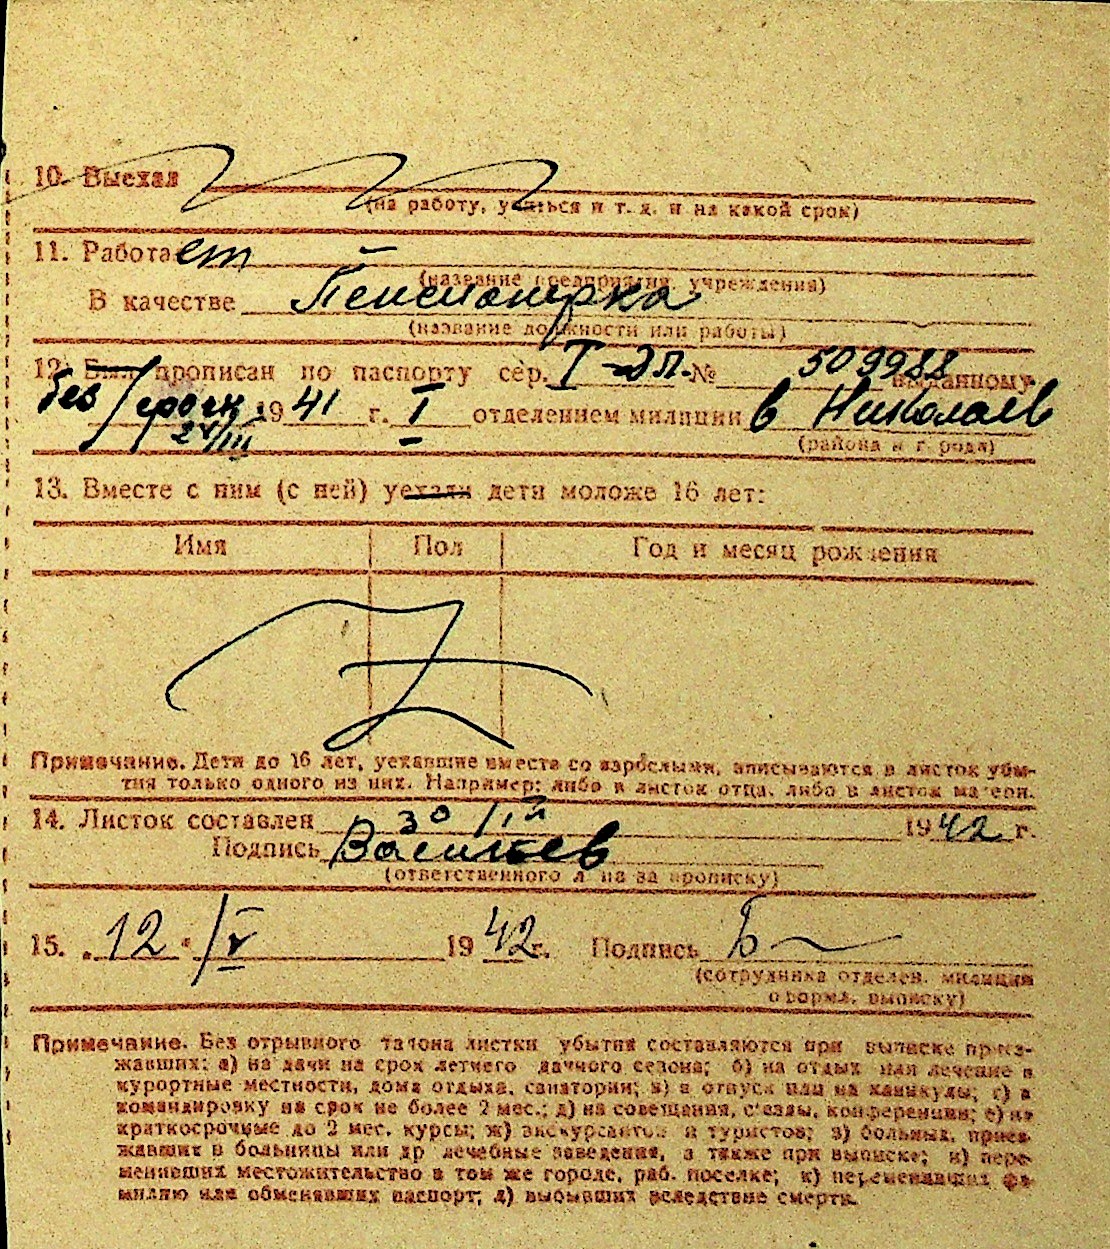 10. Выехал
(на работу, учиться и т. д. и на какой срок)
11. Работает —
(название предприятия, учреждения)
В качестве Пенсионерка
(название должности или работы)
12. Был прописан по паспорту сер. I-ЭЛ № 509988 выданному
без срочн 24/III 1941 г. I отделением милиции в Николаев
(района и города)
13. Вместе с ним (с ней) уехали дети моложе 16 лет:
Имя Пол Год и месяц рождения
Примечание. Дети до 16 лет, уехавшие вместе со взрослыми, вписываются в листок убы-
тия только одного из них. Например: либо в листок отца, либо в листок матери.
14. Листок составлен 30 1942 г.
Подпись Васильев
(ответственного лица за прописку)
15. „12 " V 1942 г. Подпись Б
(сотрудника отделен. милиции
оформл. выписку)
Примечание. Без отрывного талона листки убытия составляются при выписке приез-
жавших: а) на дачи на срок летнего дачного сезона; б) на отдых или лечение в
курортные местности, дома отдыха, санатории; в) в отпуск или на каникулы; г) в
командировку на срок не более 2 мес.; д) на совещания, съезды, конференции; е) на
краткосрочные до 2 мес. курсы; ж) экскурсантов и туристов; з) больных, приез-
жавших в больницы или др лечебные заведения, а также при выписке; и) пере-
менивших местожительство в том же городе, раб. поселке; к) переменивших фа-
милию или обменявших паспорт; л) выбывших вследствие смерти.